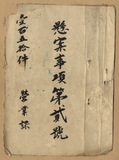 壹百五拾件
懸案事項第貳號
營業課